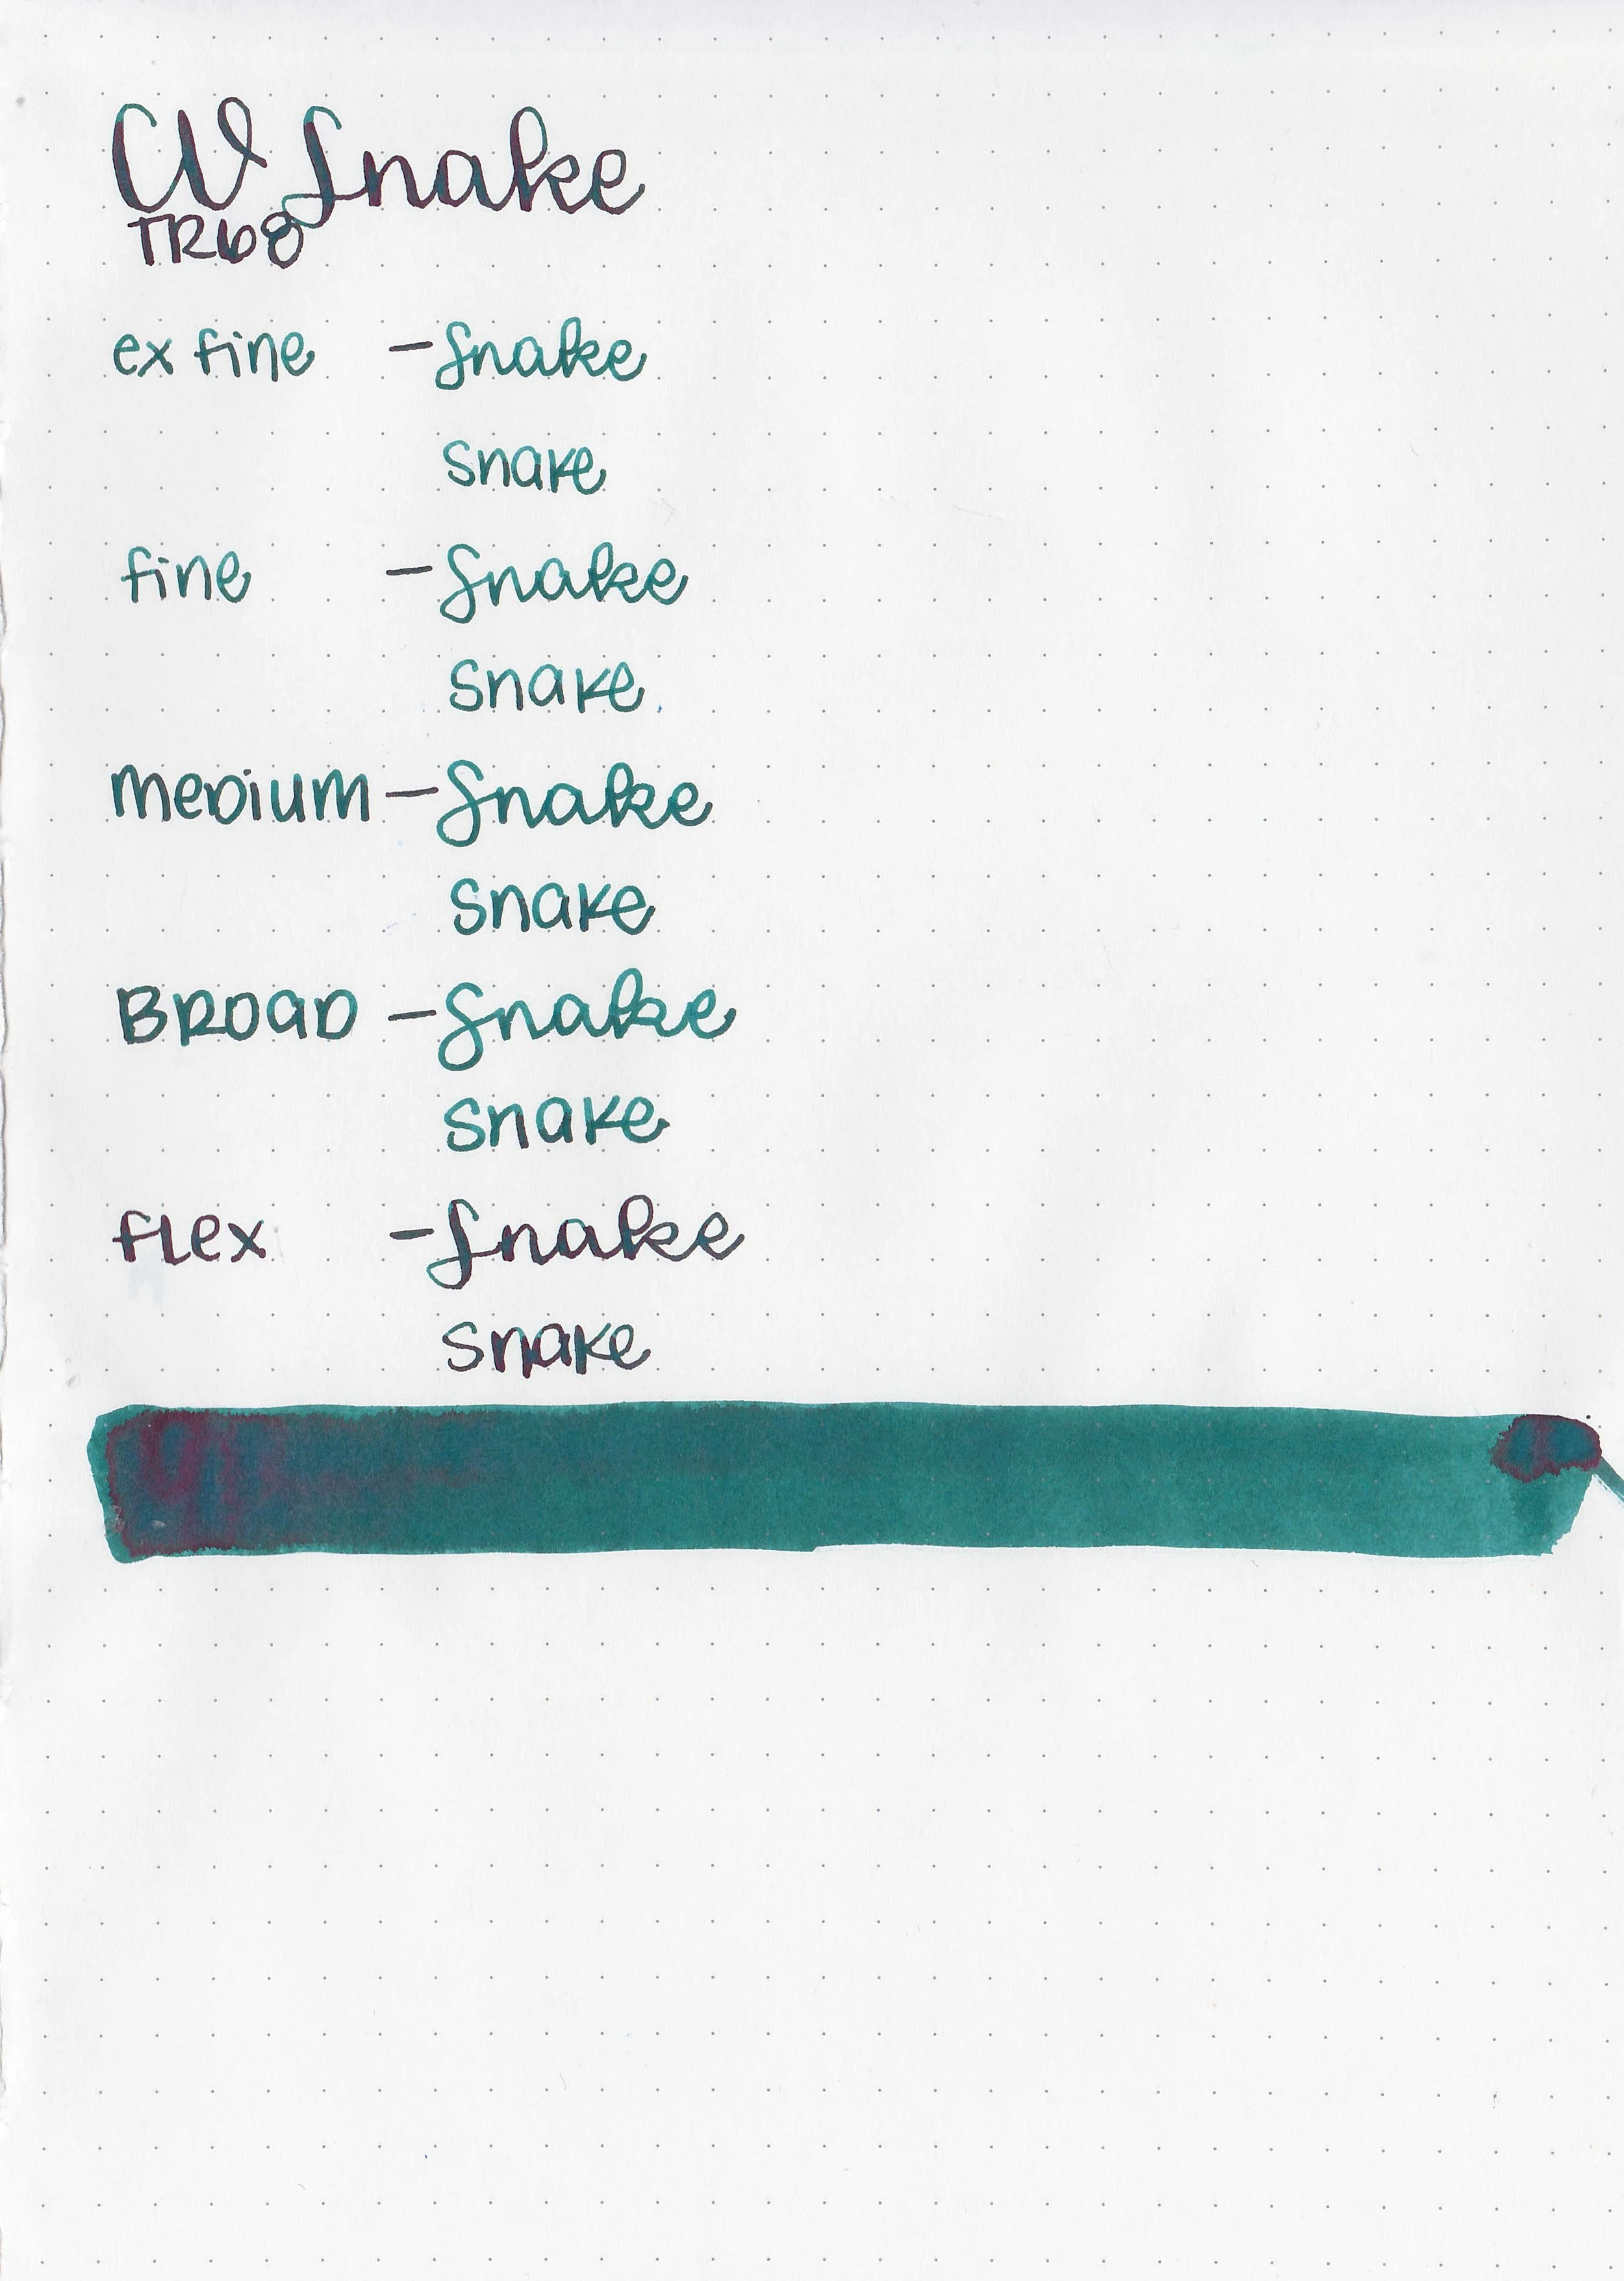 CW Snake
TR68
ex fine - Snake
snake
fine - Snake
snake
medium - Snake
snake
BROAD - Snake
snake
flex - Snake
snake